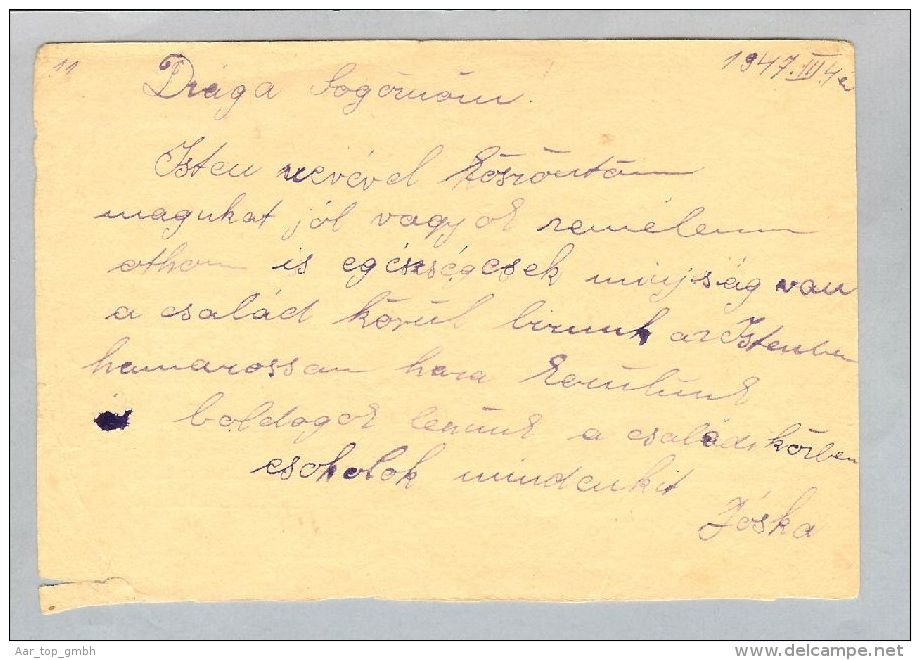 11
1947. III 4én
Drága Sogórnőm.
Isten nevével köszöntöm
magukat jól vagyok remélem
othon is egészségesek mi ujság van
a család körül bizunk az Istenben
hamarossan haza kerülünk
és boldogok leszünk a családi körben
csokolok mindenkit
Jóska
Aar_top_gmbh
www.delcampe.net